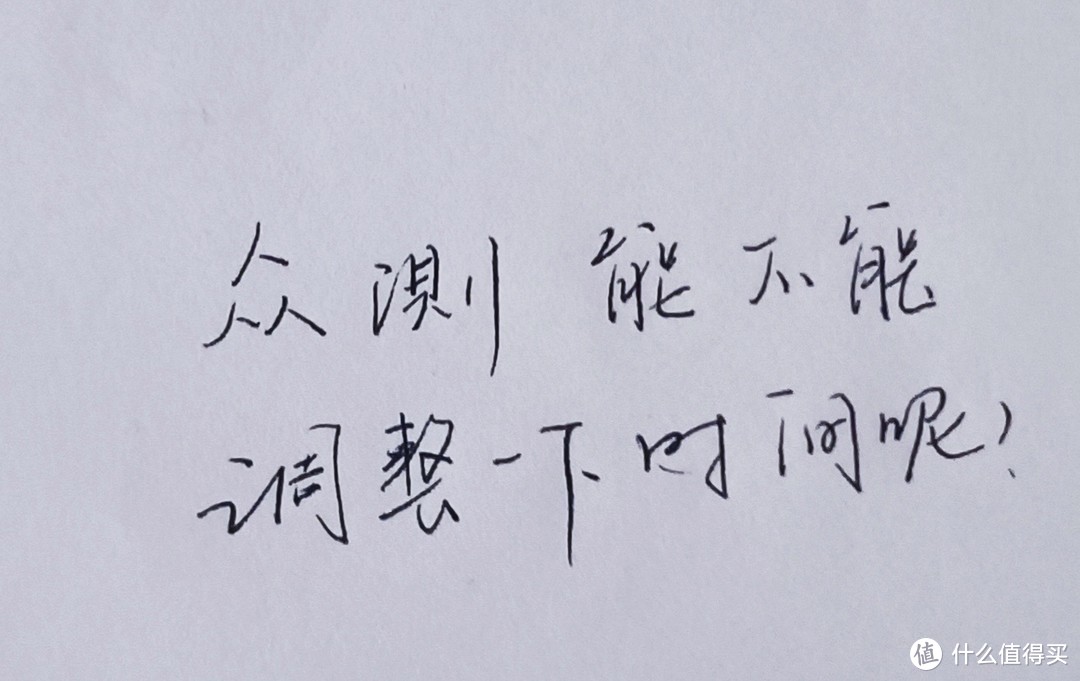 众测 能不能
调整一下时间呢？
值 什么值得买